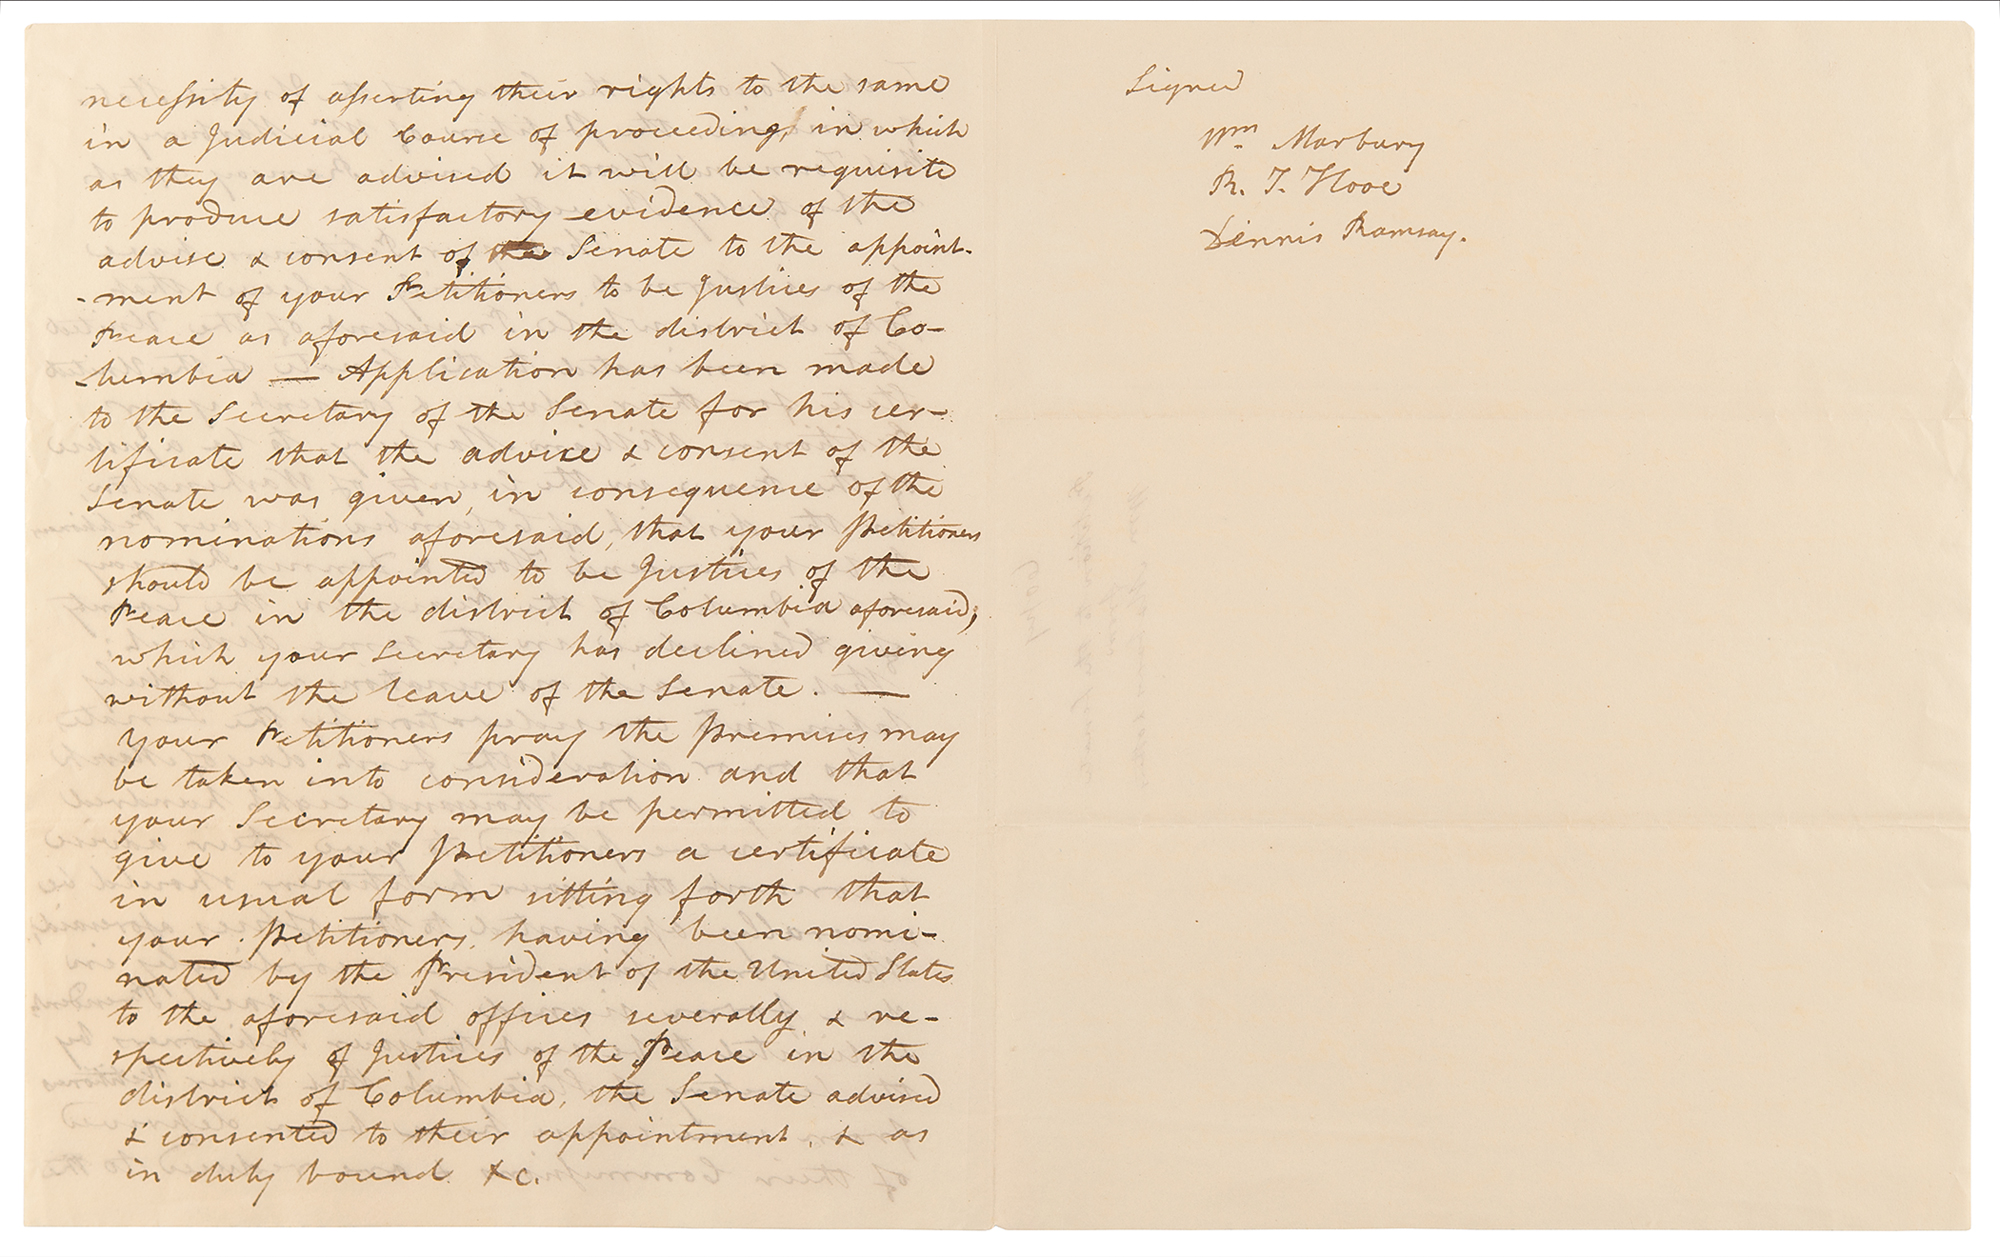 necessity of asserting their rights to the same
in a Judicial Course of proceeding, in which
as they are advised it will be requisite
to produce satisfactory evidence of the
advise & consent of the Senate to the appoint-
-ment of your Petitioners to be Justices of the
Peace as aforesaid in the district of Co-
-lumbia — Application has been made
to the Secretary of the Senate for his cer-
tificate that the advice & consent of the
Senate was given, in consequence of the
nominations aforesaid, that your Petitioners
should be appointed to be Justices of the
Peace in the district of Columbia aforesaid,
which your Secretary has declined giving
without the leave of the Senate. —
your Petitioners pray the premises may
be taken into consideration and that
your Secretary may be permitted to
give to your Petitioners a certificate
in usual form sitting forth that
your Petitioners, having been nomi-
nated by the President of the United States
to the aforesaid offices severally & re-
spectively of Justices of the Peace in the
district of Columbia, the Senate advised
& consented to their appointment, & as
in duty bound &c.
Signed
Wm. Marbury
R. T. Hooe
Dennis Ramsay.